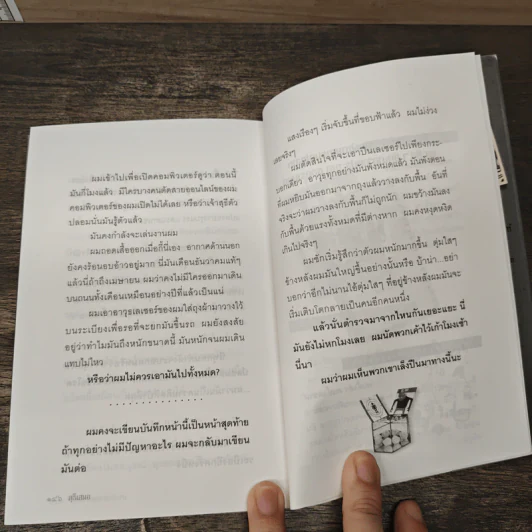 ผมเข้าไปเพื่อเปิดคอมพิวเตอร์ดูว่า ตอนนี้
มันกี่โมงแล้ว มีใครบางคนตัดสายออนไลน์ของผม
คอมพิวเตอร์ของผมเปิดไม่ได้เลย หรือว่าเจ้าสุธีตัว
ปลอมนั่นมันรู้ตัวแล้ว
มันคงกำลังจะเล่นงานผม
ผมถอดเสื้อออกเมื่อกี้นี้เอง อากาศด้านนอก
ยังคงร้อนอบอ้าวอยู่มาก นี่มันเดือนธันวาคมแท้ๆ
แล้วนี่ถ้าถึงเมษายน ผมว่าคงไม่มีใครออกมาเดิน
บนถนนทั้งเดือนเหมือนอย่างปีที่แล้วเป็นแน่
ผมเอาอาวุธเลเซอร์ของผมใส่ถุงผ้ามาวางไว้
บนระเบียงเพื่อรอที่จะยกมันขึ้นรถ ผมยังสงสัย
อยู่ว่าทำไมมันถึงหนักขนาดนี้ มันหนักจนผมเดิน
แทบไม่ไหว
หรือว่าผมไม่ควรเอามันไปทั้งหมด?
. . . . . . . . . . . . . . . .
ผมคงจะเขียนบันทึกหน้านี้เป็นหน้าสุดท้าย
ถ้าทุกอย่างไม่มีปัญหาอะไร ผมจะกลับมาเขียน
มันต่อ
แสงเรืองๆ เริ่มจับขึ้นที่ขอบฟ้าแล้ว ผมไม่ง่วง
เลยจริงๆ
ผมตัดสินใจที่จะเอาปืนเลเซอร์ไปเพียงกระ-
บอกเดียว อาวุธทุกอย่างมันพังหมดแล้ว มันพังตอน
ที่ผมหยิบมันออกมาจากถุงแล้ววางลงกับพื้น อันที่
จริงจะว่าผมวางลงกับพื้นก็ไม่ถูกนัก ผมขว้างมันลง
กับพื้นด้วยแรงทั้งหมดที่มีต่างหาก ผมคงหงุดหงิด
เกินไปจริงๆ
ผมชักเริ่มรู้สึกว่าตัวผมหนักมากขึ้น ตุ่มใสๆ
ข้างหลังผมมันใหญ่ขึ้นอย่างนั้นหรือ บ้าน่า...อย่า
บอกว่าอีกไม่นานไอ้ตุ่มใสๆ ที่อยู่ข้างหลังผมมันจะ
เริ่มเติบโตกลายเป็นคนอีกคนหนึ่ง
แล้วนั่นตำรวจมาจากไหนกันเยอะแยะ นี่
มันยังไม่หกโมงเลย ผมนัดพวกเค้าไว้เก้าโมงเช้า
นี่นา
ผมว่าผมเห็นพวกเขาเล็งปืนมาทางนี้นะ